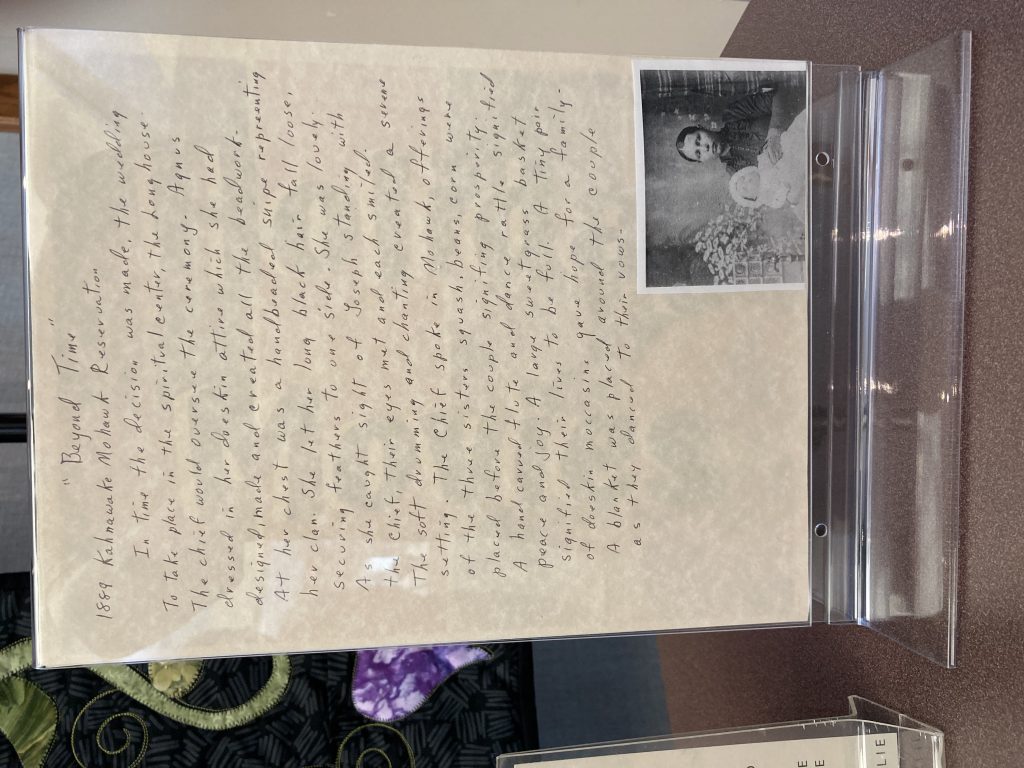 "Beyond Time"
1889 Kahnawake Mohawk Reservation
In time the decision was made, the wedding
To take place in the spiritual center, the longhouse.
The chief would oversee the ceremony. Agnus
dressed in her doeskin attire which she had
designed, made and created all the beadwork.
At her chest was a handbeaded snipe repreenting
her clan. She let her long black hair fall loose,
securing feathers to one side. She was lovely.
As she caught sight of Joseph standing with
the Chief, Their eyes met and each smiled.
The soft drumming and chanting created a serene
setting. The Chief spoke in Mohawk, offerings
of the three sisters squash, beans, corn were
placed before the couple signifing prosperity.
A hand carved flute and dance rattle signified
peace and joy. A large sweetgrass basket
signified their lives to be full. A tiny pair
of doeskin moccasins gave hope for a family.
A blanket was placed around the couple
as they danced to their vows.
LIE